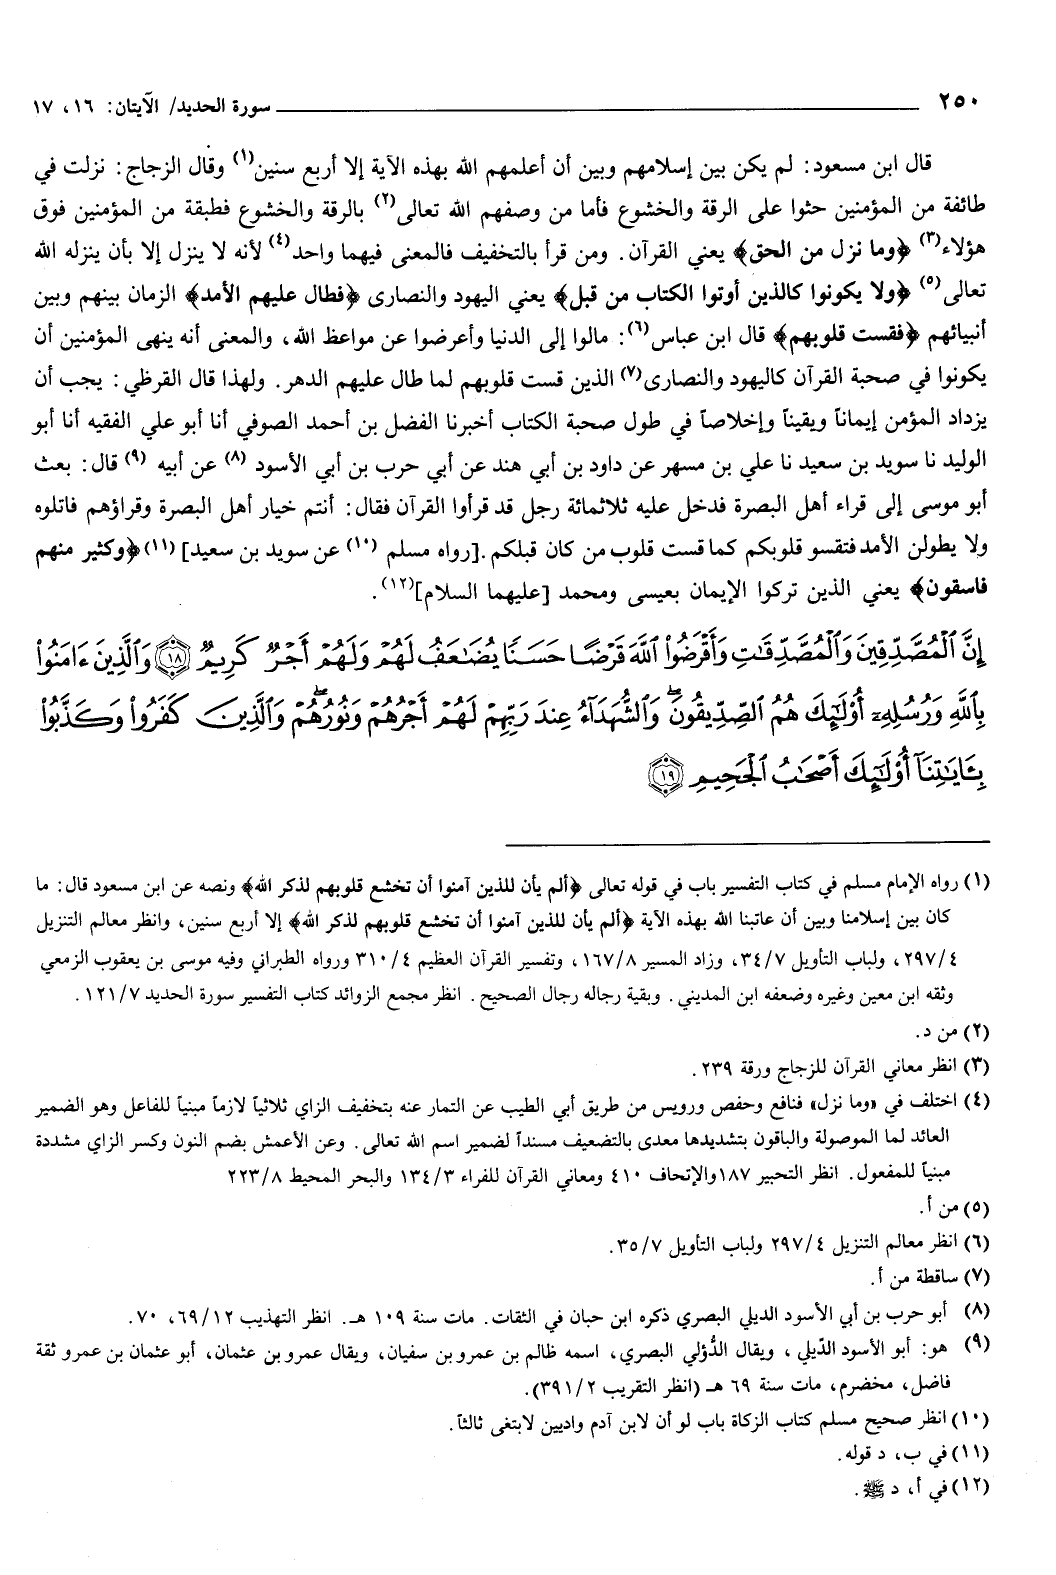 ٢٥٠ سورة الحديد/ الآيتان: ١٦، ١٧
قال ابن مسعود: لم يكن بين إسلامهم وبين أن أعلمهم الله بهذه الآية إلا أربع سنين(١) وقال الزجاج: نزلت في
طائفة من المؤمنين حثوا على الرقة والخشوع فأما من وصفهم الله تعالى(٢) بالرقة والخشوع فطبقة من المؤمنين فوق
هؤلاء(٣) ﴿وما نزل من الحق﴾ يعني القرآن. ومن قرأ بالتخفيف فالمعنى فيهما واحد(٤) لأنه لا ينزل إلا بأن ينزله الله
تعالى(٥) ﴿ولا يكونوا كالذين أوتوا الكتاب من قبل﴾ يعني اليهود والنصارى ﴿فطال عليهم الأمد﴾ الزمان بينهم وبين
أنبيائهم ﴿فقست قلوبهم﴾ قال ابن عباس(٦): مالوا إلى الدنيا وأعرضوا عن مواعظ الله، والمعنى أنه ينهى المؤمنين أن
يكونوا في صحبة القرآن كاليهود والنصارى(٧) الذين قست قلوبهم لما طال عليهم الدهر. ولهذا قال القرظي: يجب أن
يزداد المؤمن إيماناً ويقيناً وإخلاصاً في طول صحبة الكتاب أخبرنا الفضل بن أحمد الصوفي أنا أبو علي الفقيه أنا أبو
الوليد نا سويد بن سعيد نا علي بن مسهر عن داود بن أبي هند عن أبي حرب بن أبي الأسود (٨) عن أبيه (٩) قال: بعث
أبو موسى إلى قراء أهل البصرة فدخل عليه ثلاثمائة رجل قد قرأوا القرآن فقال: أنتم خيار أهل البصرة وقراؤهم فاتلوه
ولا يطولن الأمد فتقسو قلوبكم كما قست قلوب من كان قبلكم.[رواه مسلم (١٠) عن سويد بن سعيد] (١١)﴿وكثير منهم
فاسقون﴾ يعني الذين تركوا الإيمان بعيسى ومحمد [عليهما السلام](١٢).
إِنَّ ٱلْمُصَّدِّقِينَ وَٱلْمُصَّدِّقَٰتِ وَأَقْرَضُوا۟ ٱللَّهَ قَرْضًا حَسَنًا يُضَٰعَفُ لَهُمْ وَلَهُمْ أَجْرٌ كَرِيمٌ ﴿١٨﴾ وَٱلَّذِينَ ءَامَنُوا۟
بِٱللَّهِ وَرُسُلِهِۦٓ أُو۟لَٰٓئِكَ هُمُ ٱلصِّدِّيقُونَ ۖ وَٱلشُّهَدَآءُ عِندَ رَبِّهِمْ لَهُمْ أَجْرُهُمْ وَنُورُهُمْ ۖ وَٱلَّذِينَ كَفَرُوا۟ وَكَذَّبُوا۟
بِـَٔايَٰتِنَآ أُو۟لَٰٓئِكَ أَصْحَٰبُ ٱلْجَحِيمِ ﴿١٩﴾
(١) رواه الإمام مسلم في كتاب التفسير باب في قوله تعالى ﴿ألم يأن للذين آمنوا أن تخشع قلوبهم لذكر الله﴾ ونصه عن ابن مسعود قال: ما
كان بين إسلامنا وبين أن عاتبنا الله بهذه الآية ﴿ألم يأن للذين آمنوا أن تخشع قلوبهم لذكر الله﴾ إلا أربع سنين، وانظر معالم التنزيل
٢٩٧/٤، ولباب التأويل ٣٤/٧، وزاد المسير ١٦٧/٨، وتفسير القرآن العظيم ٣١٠/٤ ورواه الطبراني وفيه موسى بن يعقوب الزمعي
وثقه ابن معين وغيره وضعفه ابن المديني. وبقية رجاله رجال الصحيح. انظر مجمع الزوائد كتاب التفسير سورة الحديد ١٢١/٧.
(٢) من د.
(٣) انظر معاني القرآن للزجاج ورقة ٢٣٩.
(٤) اختلف في «وما نزل» فنافع وحفص ورويس من طريق أبي الطيب عن التمار عنه بتخفيف الزاي ثلاثياً لازماً مبنياً للفاعل وهو الضمير
العائد لما الموصولة والباقون بتشديدها معدى بالتضعيف مسنداً لضمير اسم الله تعالى. وعن الأعمش بضم النون وكسر الزاي مشددة
مبنياً للمفعول. انظر التحبير ١٨٧ والإتحاف ٤١٠ ومعاني القرآن للفراء ١٣٤/٣ والبحر المحيط ٢٢٣/٨
(٥) من أ.
(٦) انظر معالم التنزيل ٢٩٧/٤ ولباب التأويل ٣٥/٧.
(٧) ساقطة من أ.
(٨) أبو حرب بن أبي الأسود الديلي البصري ذكره ابن حبان في الثقات. مات سنة ١٠٩ هـ. انظر التهذيب ٦٩/١٢، ٧٠.
(٩) هو: أبو الأسود الدّيلي، ويقال الدُّؤلي البصري، اسمه ظالم بن عمرو بن سفيان، ويقال عمرو بن عثمان، أبو عثمان بن عمرو ثقة
فاضل، مخضرم، مات سنة ٦٩ هـ (انظر التقريب ٣٩١/٢).
(١٠) انظر صحيح مسلم كتاب الزكاة باب لو أن لابن آدم واديين لابتغى ثالثاً.
(١١) في ب، د قوله.
(١٢) في أ، د ﷺ.